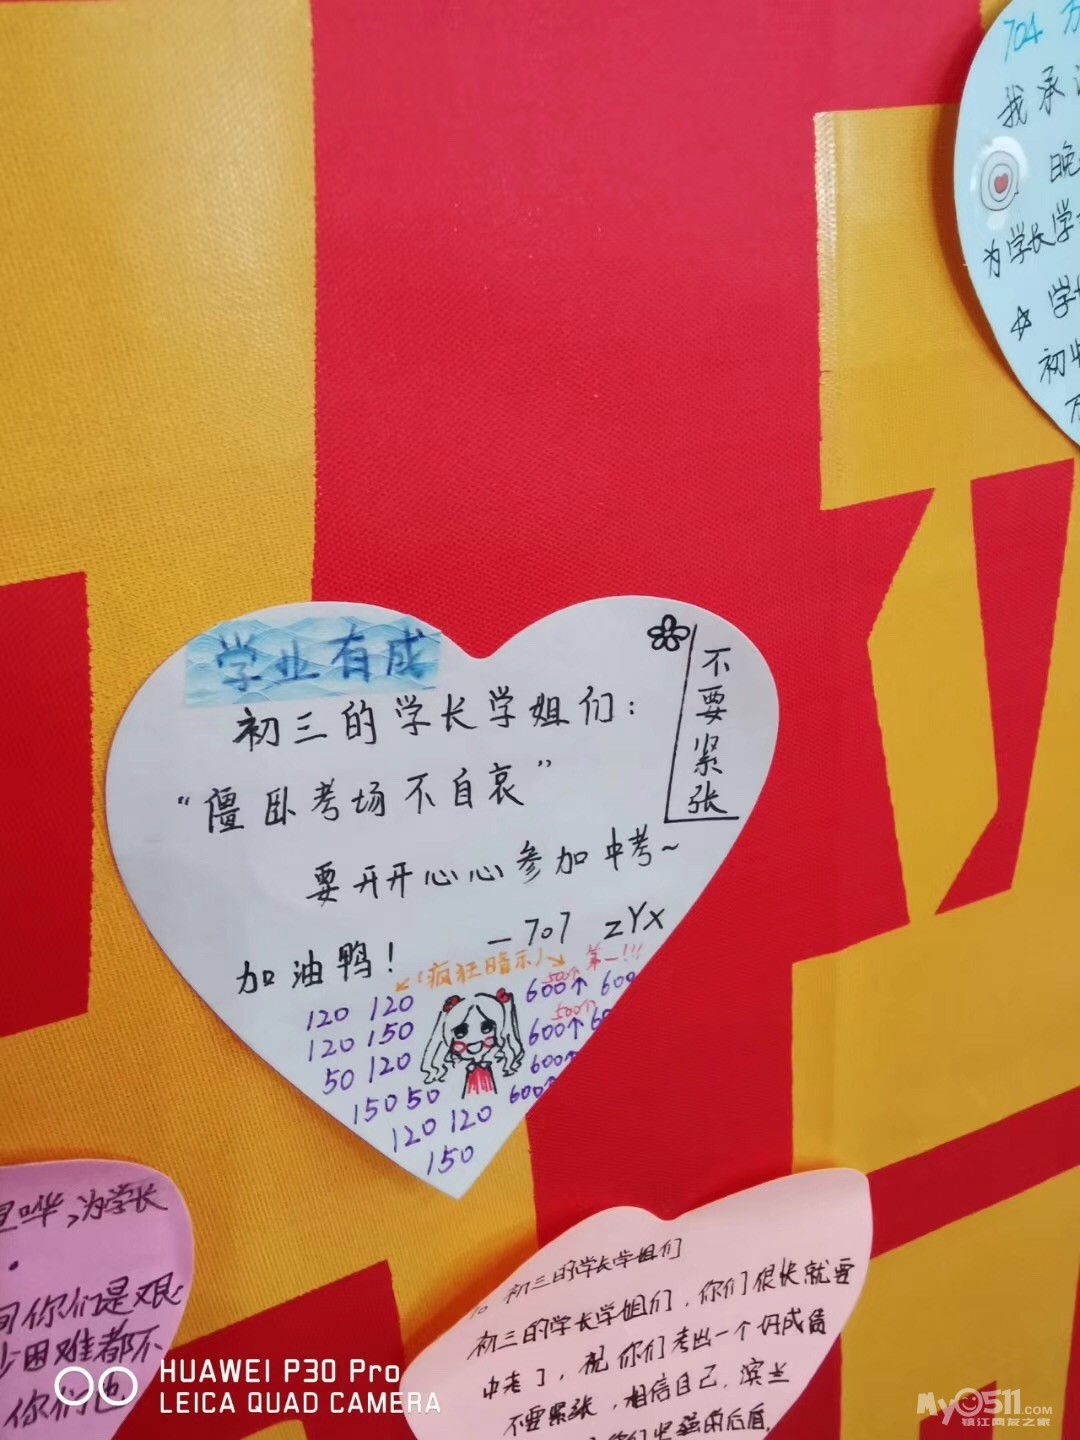 704
我承
晚
为学长学
☆ 学
初
学业有成
初三的学长学姐们：
“僵卧考场不自哀”
要开开心心参加中考~
—707 ZYX
加油鸭！
不要紧张
(疯狂暗示)
第一!!!
120 120
120 150
50 120
150 50
120 120
150
500↑
600↑ 600
500个
600↑ 60
600↑
600↑
哗，为学长
你们是艰
困难都不
你们也
初三的学长学姐们
初三的学长学姐们，你们很快就要
中考了，祝你们考出一个好成绩
不要紧张，相信自己，滨兰
你们坚强的后盾
HUAWEI P30 Pro
LEICA QUAD CAMERA
My0511.COM
镇江网友之家